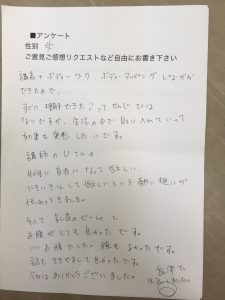 ■アンケート
性別 女
ご意見ご感想リクエストなど自由にお書き下さい
講義+ボディーワーク、ボディーマッピングしながら
できたので、
すぐに理解できた!ってかんじでは
ないですが、生活の中で取り入れていって
効果を実感したいです。
講師のUさんの
自由になって欲しい、
いきいきとして欲しいという熱い想いが
伝わってきました。
そして
お腹がとても良かったです。
いいお腹でした。腰も なかったです。
話もききやすくて良かったです。
今日はありがとうございました。